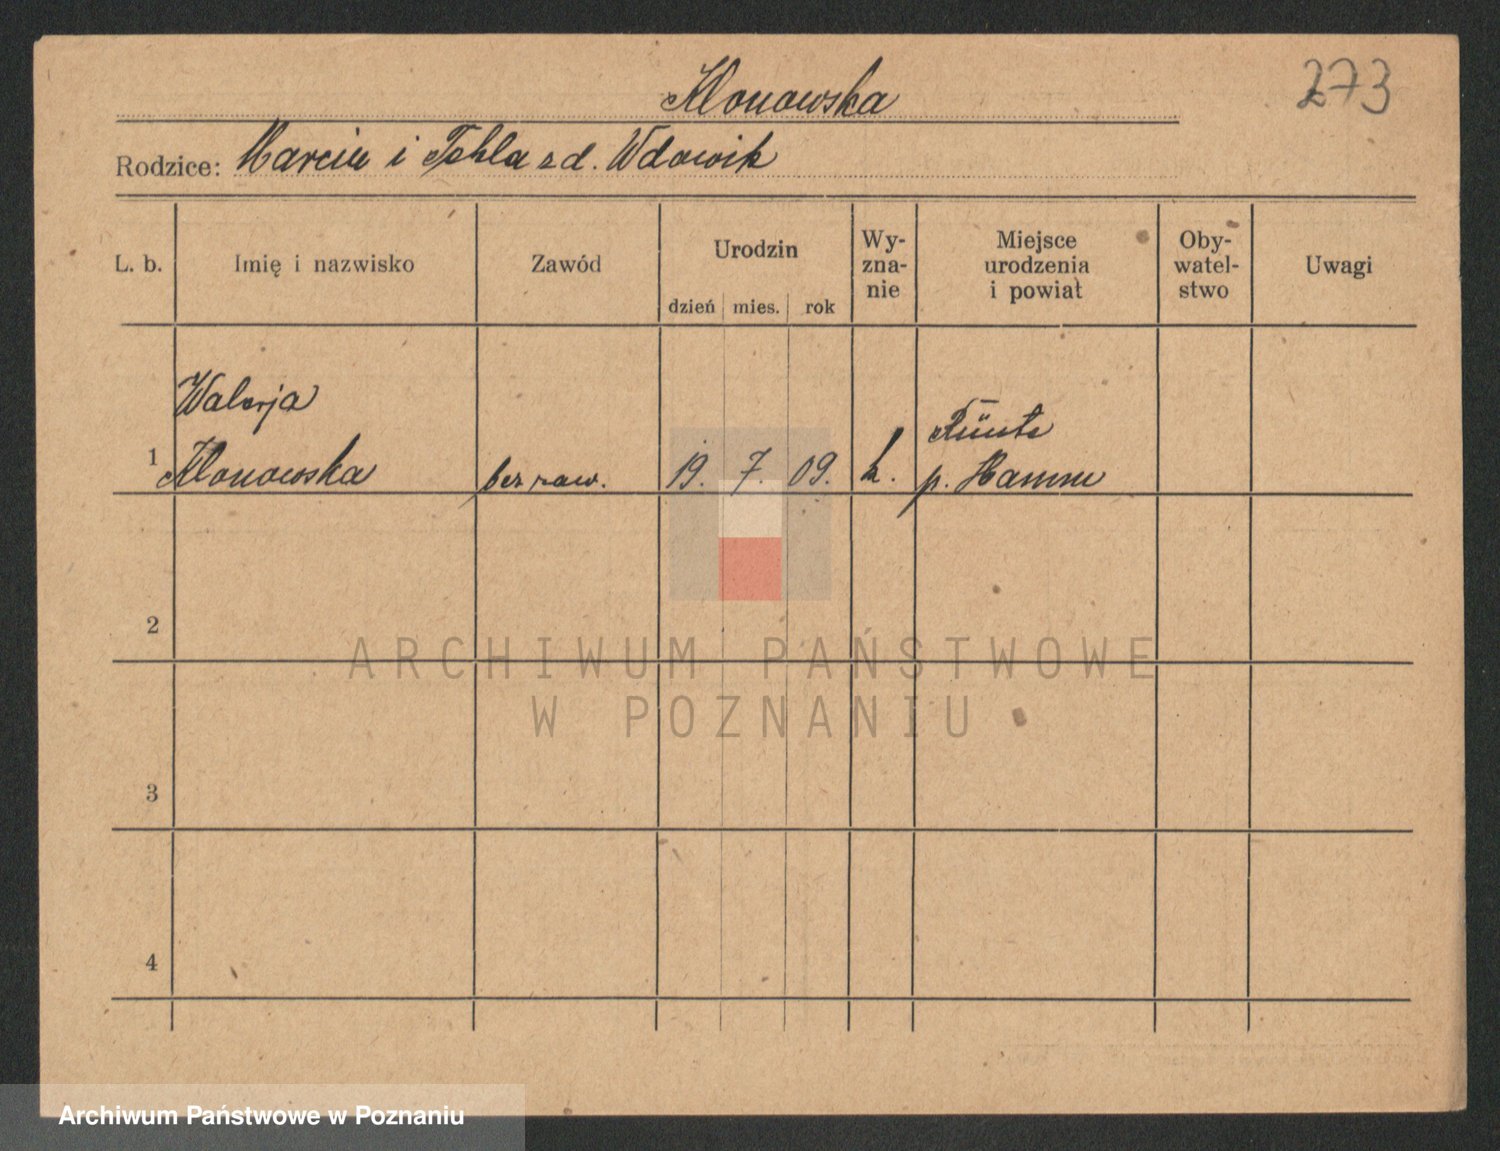 Klonowska
273
Rodzice: Marcin i Tekla z d. Wdowik
L. b.
Imię i nazwisko
Zawód
Urodzin
dzień mies. rok
Wy-
zna-
nie
Miejsce
urodzenia
i powiat
Oby-
watel-
stwo
Uwagi
Walerja
1 Klonowska bez zaw. 19. 7. 09. k.
p. Hamm
2
ARCHIWUM PAŃSTWOWE
W POZNANIU
3
4
Archiwum Państwowe w Poznaniu